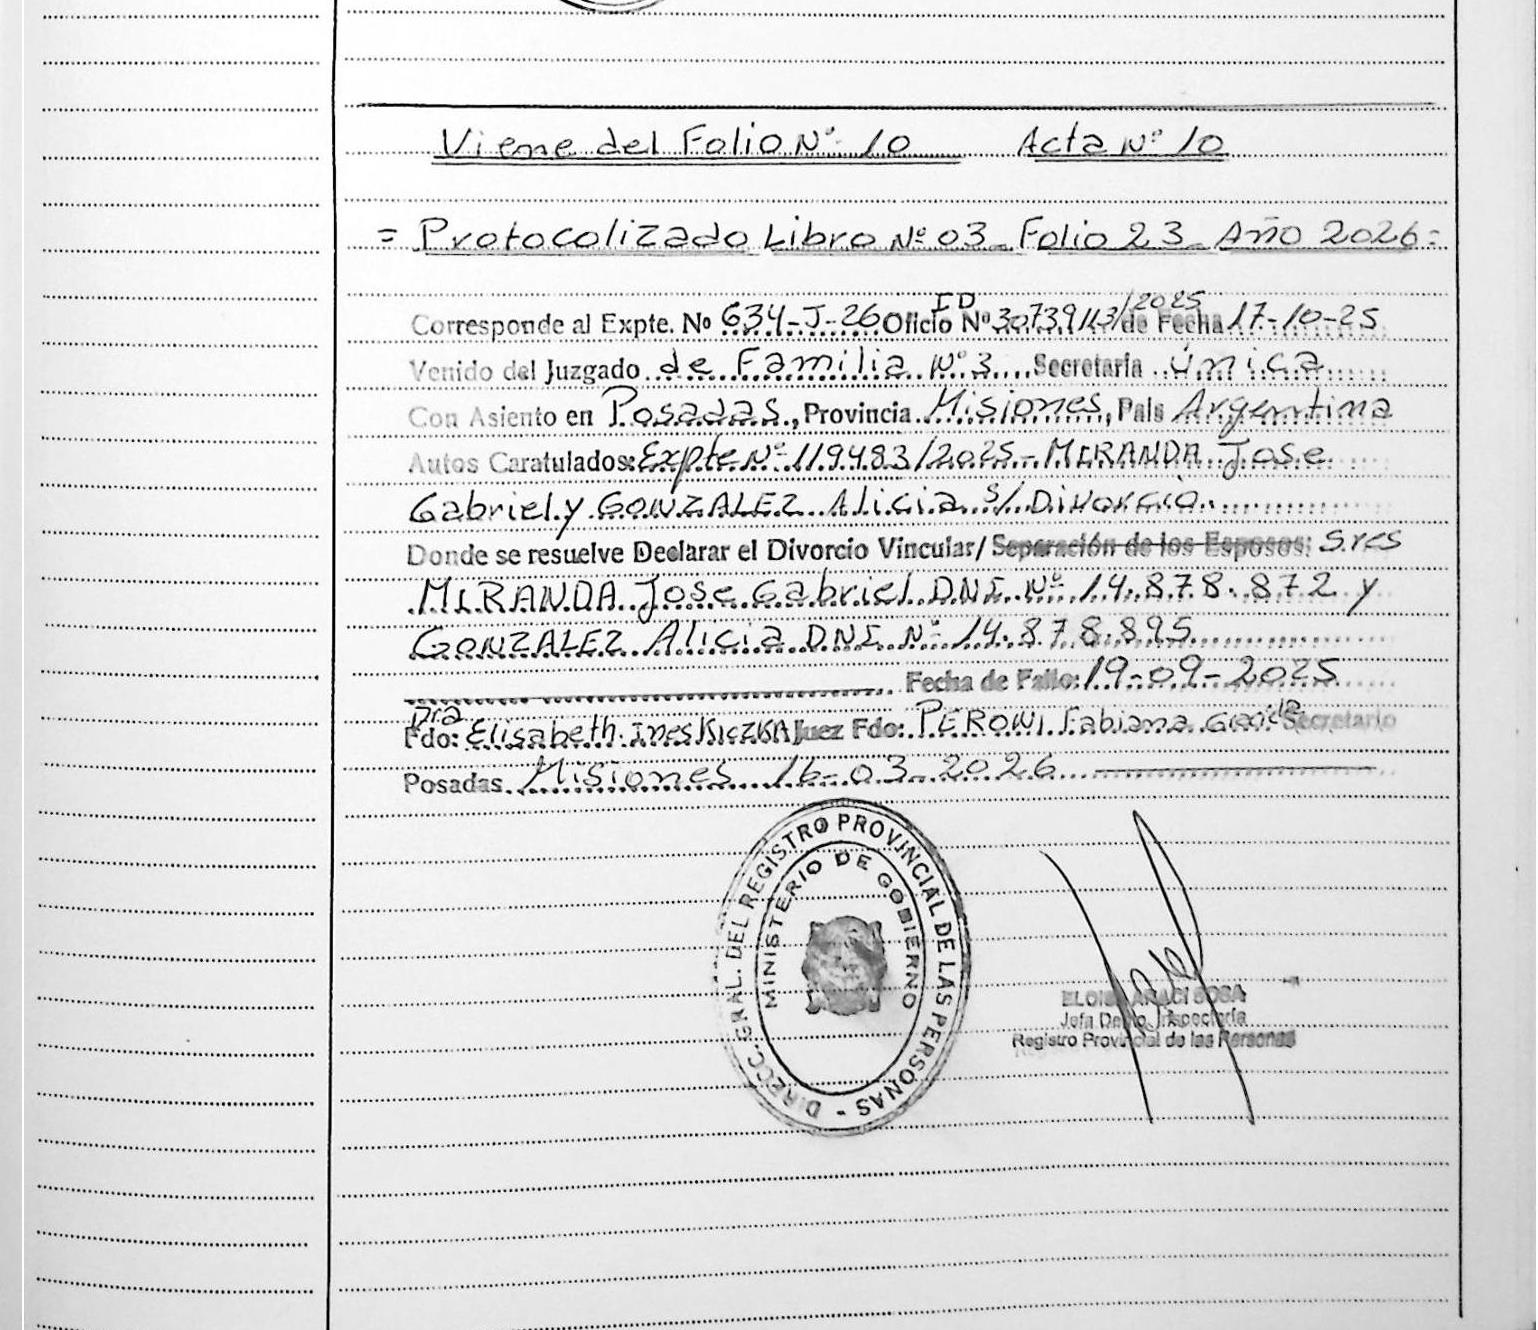 Viene del Folio Nº 10 Acta Nº 10
= Protocolizado Libro Nº 03_ Folio 23_ Año 2026=
Corresponde al Expte. Nº 634-J-26 Oficio ID Nº 30739113/2025 de Fecha 17-10-25
Venido del Juzgado de Familia Nº 3 Secretaría Única
Con Asiento en Posadas, Provincia Misiones, País Argentina
Autos Caratulados: Expte Nº 119483/2025- MIRANDA Jose
Gabriel y GONZALEZ Alicia s/ Divorcio
Donde se resuelve Declarar el Divorcio Vincular/ Separación de los Esposos: Sres
MIRANDA Jose Gabriel DNI Nº 14.878.872 y
GONZALEZ Alicia DNI Nº 14.878.895
Fecha de Fallo: 19-09-2025
Fdo: Dra Elisabeth Ines KICZKA Juez Fdo: PERONI Fabiana Secretario
Posadas Misiones 16-03-2026
DIRECC. GRAL. DEL REGISTRO PROVINCIAL DE LAS PERSONAS -
MINISTERIO DE GOBIERNO
ELOISA ARACI SOSA
Jefa Depto. Inspectoría
Registro Provincial de las Personas